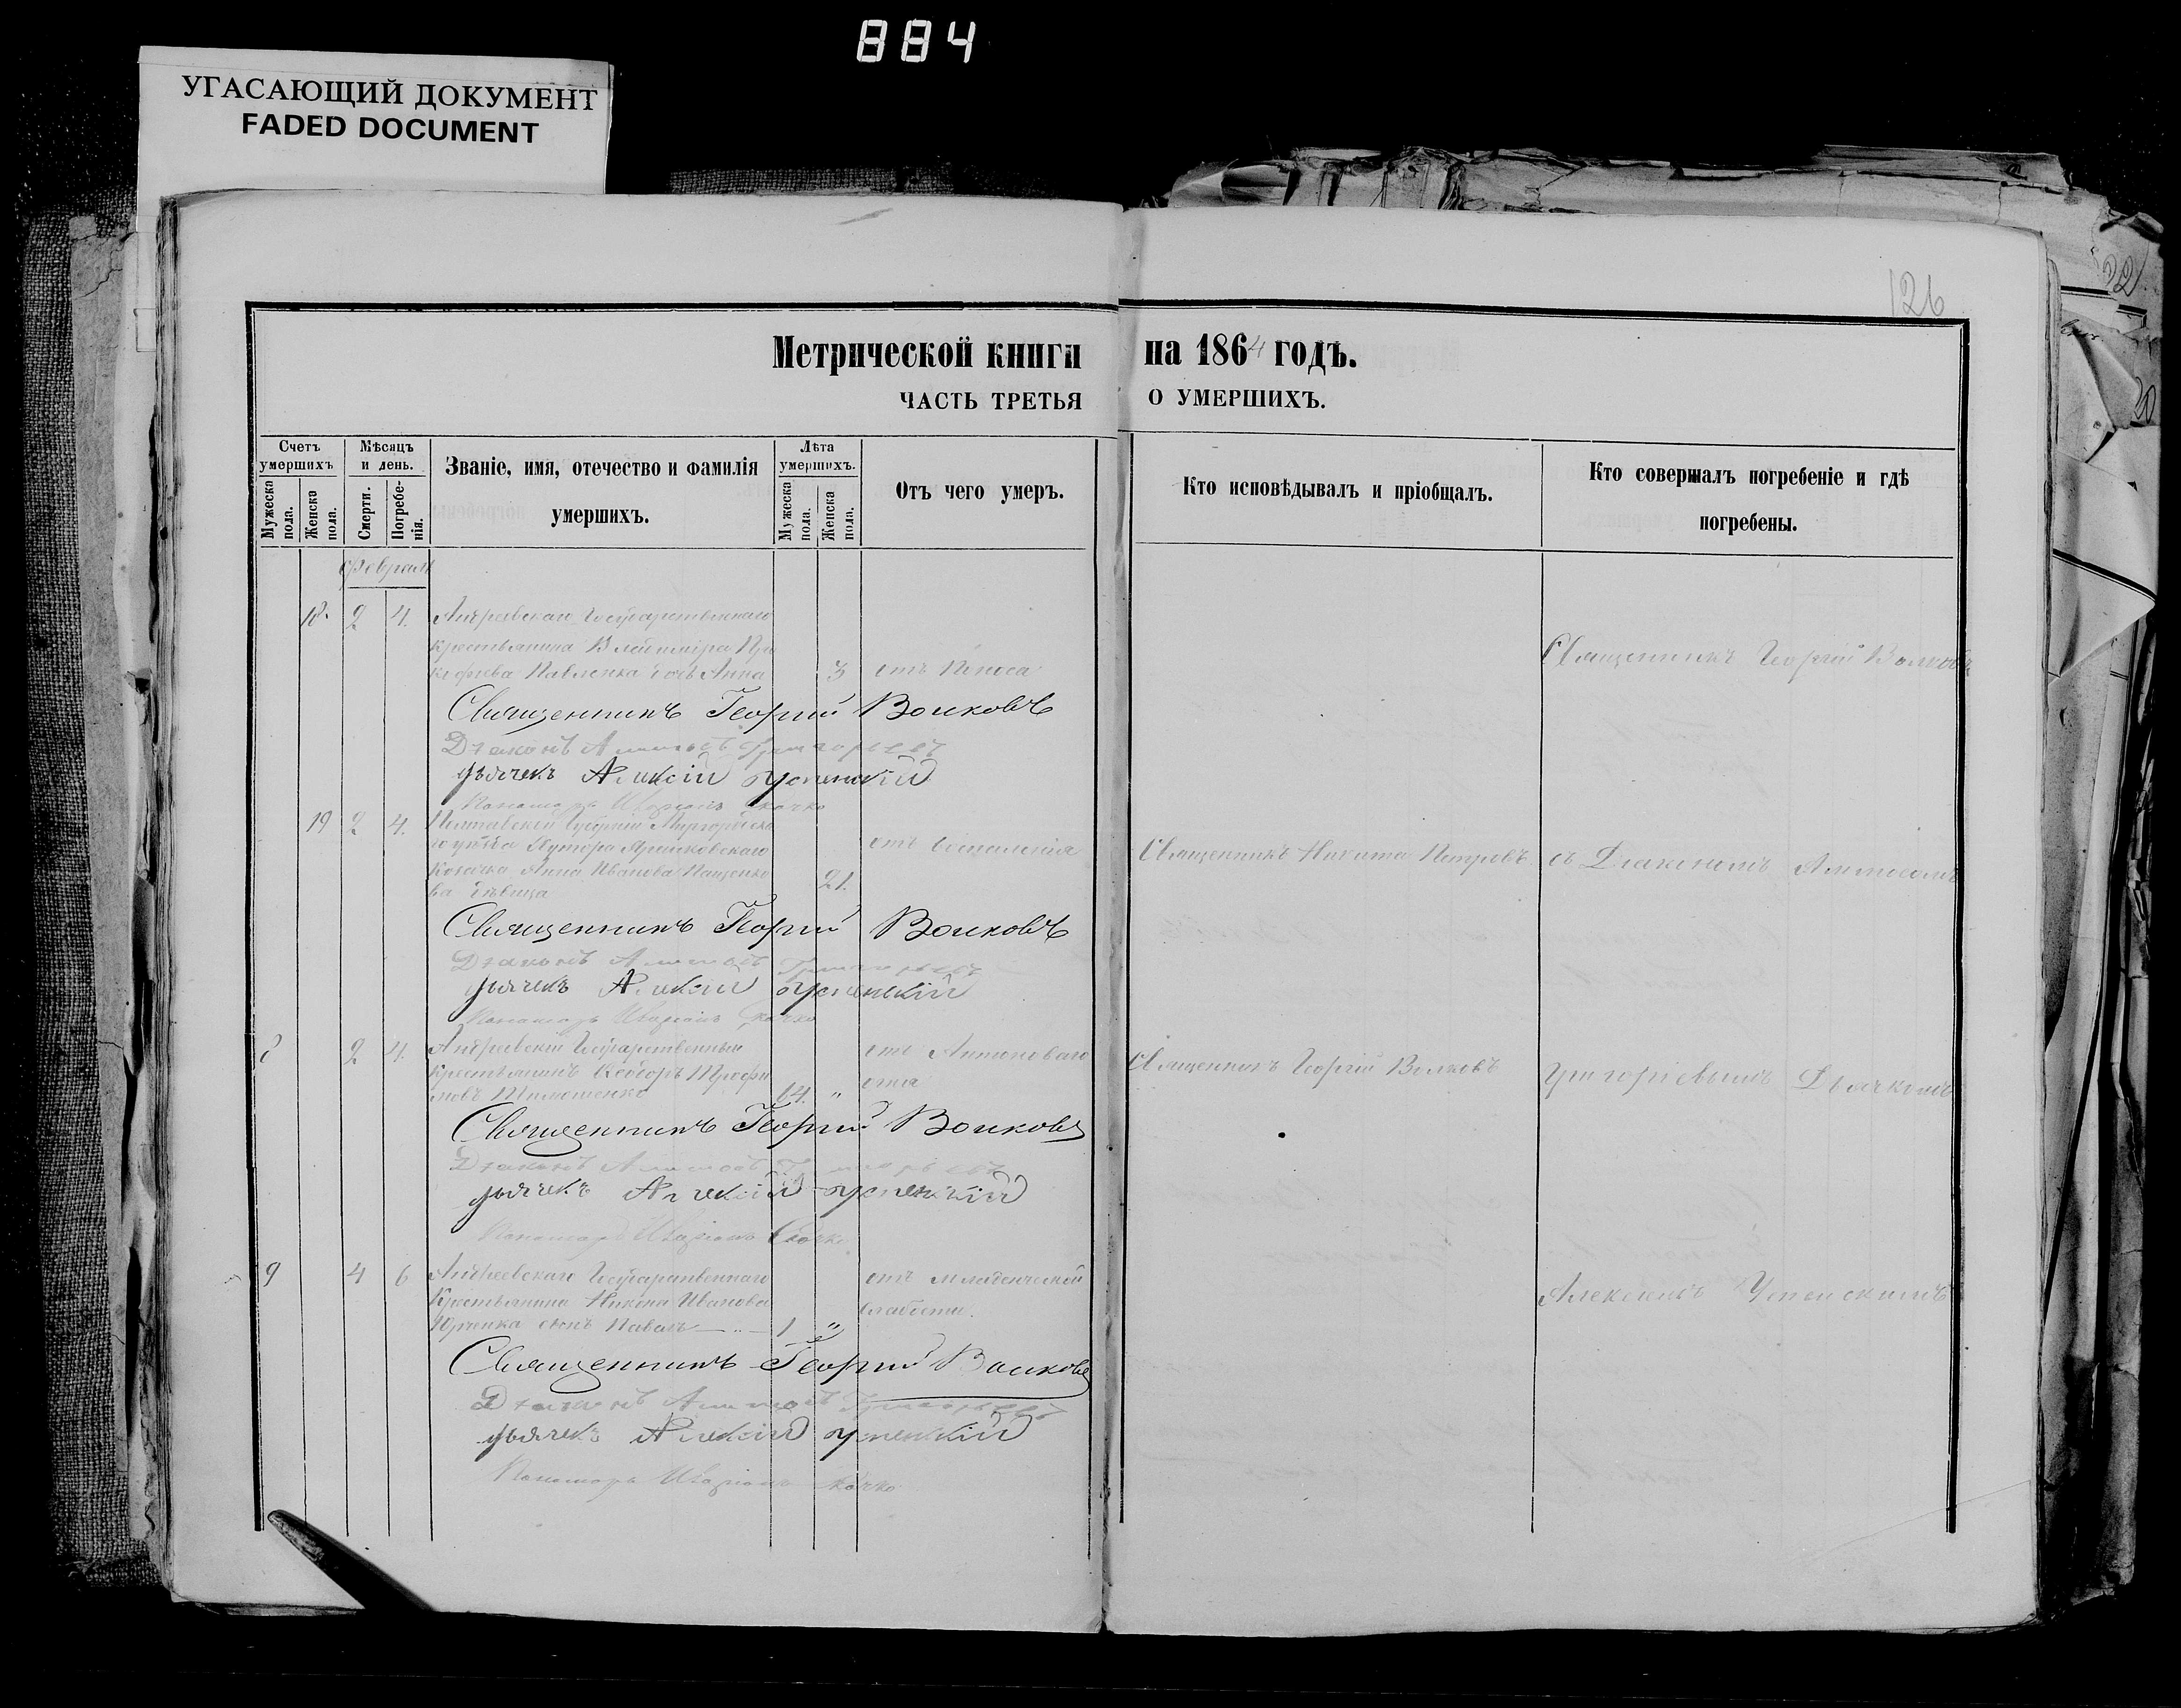 884
УГАСАЮЩИЙ ДОКУМЕНТ
FADED DOCUMENT
126
Метрической книги на 1864 годъ.
ЧАСТЬ ТРЕТЬЯ О УМЕРШИХЪ.
Счетъ умершихъ.
Мужеска пола.
Женска пола.
Мѣсяцъ и день.
Смерти.
Погребенія.
Званіе, имя, отечество и фамилія умершихъ.
Лѣта умершихъ.
Мужеска пола.
Женска пола.
Отъ чего умеръ.
Кто исповѣдывалъ и пріобщалъ.
Кто совершалъ погребеніе и гдѣ погребены.
Февраля
18. 2 4. Андреевскаго Государственнаго
крестьянина Владиміра Про
кофьева Павленка дочь Анна 3 отъ Поноса
Священникъ Георгій Волковъ
Священникъ Георгій Волковъ
Діаконъ Аммосъ Григорьевъ
Дьячекъ Алексій Успенскій
Пономарь Иларіонъ Скачко
19 2 4. Полтавской Губерніи Миргородска
го уѣзда Хутора
Козачка Анна Иванова Пащенко
ва дѣвица 21. отъ Воспаленія
Священникъ Никита Петровъ съ Діакономъ Аммосомъ
Священникъ Георгій Волковъ
Діаконъ Аммосъ Григорьевъ
Дьячекъ Алексій Успенскій
Пономарь Иларіонъ Скачко
8 2 4. Андреевскій Государственный
крестьянинъ Ѳеодоръ Трофи
мовъ Тимошенко 64. " отъ Антоноваго
огня
Священникъ Георгій Волковъ Григорьевымъ Дьячкомъ
Священникъ Георгій Волковъ
Діаконъ Аммосъ Григорьевъ
Дьячекъ Алексій Успенскій
Пономарь Иларіонъ Скачко
9 4 6 Андреевскаго Государственнаго
Крестьянина Никона Иванова
Юрченка сынъ Павелъ 1 " отъ младенческой
слабости.
Алексіемъ Успенскимъ
Священникъ Георгій Волковъ
Діаконъ Аммосъ Григорьевъ
Дьячекъ Алексій Успенскій
Пономарь Иларіонъ Скачко